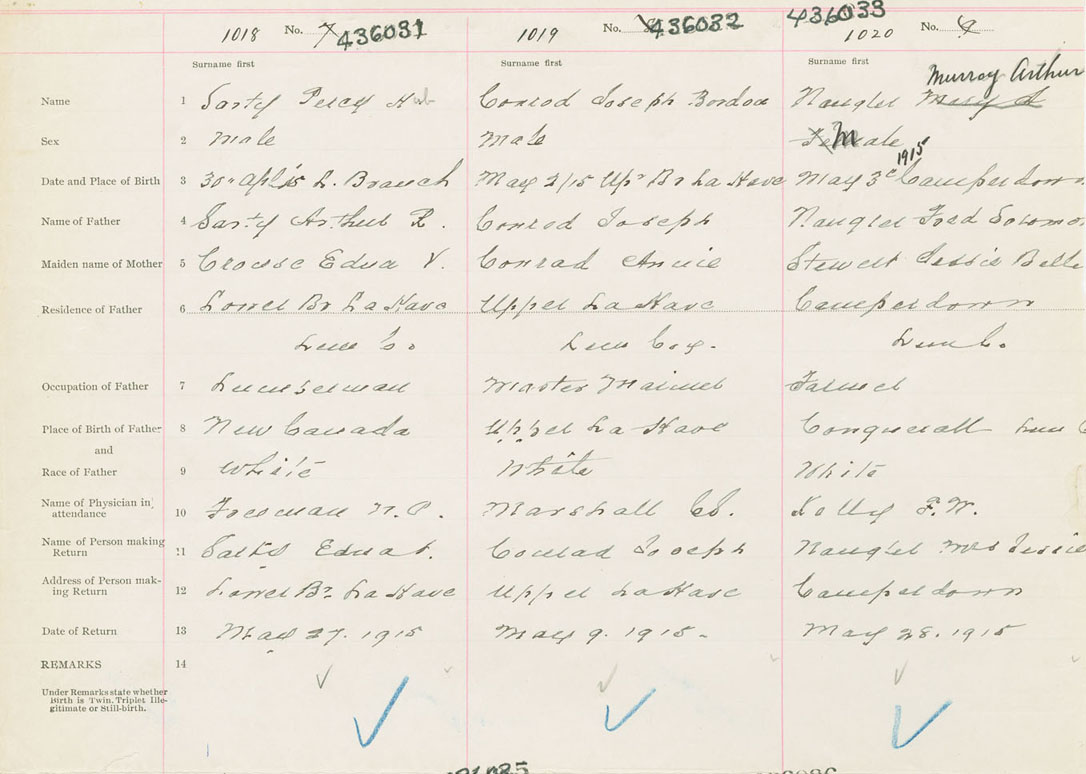 1018 No. 7 436031 1019 No. 8 436032 436033 1020 No. 9
Surname first Surname first Surname first
Murray Arthur
Name 1 Sarty Percy Conrad Joseph Naugler Mary A
Sex 2 Male Male Female M
1915
Date and Place of Birth 3 30" Apl 15 L. Branch May 2/15 Upr Br La Have May 3d Camperdown
Name of Father 4 Sarty Arthur R. Conrad Joseph Naugler Ford Solomo
Maiden name of Mother 5 Crouse Edna V. Conrad Annie Stewert Jessie Belle
Residence of Father 6 Lower Br La Have Upper La Have Camperdown
Lun Co. Lun Coy. Lun Co.
Occupation of Father 7 Lumberman Master Mariner Farmer
Place of Birth of Father 8 New Canada Upper La Have Conquerall Lun C
and
Race of Father 9 White White White
Name of Physician in attendance 10 Freeman N.P. Marshall C. Kelly F.W.
Name of Person making Return 11 Edna Conrad Joseph Naugler Mrs Jessie
Address of Person mak-
ing Return 12 Lower Br. La Have Upper La Have Camperdown
Date of Return 13 May 27. 1915 May 9. 1915. May 28. 1915
REMARKS 14
Under Remarks state whether
Birth is Twin, Triplet Ille-
gitimate or Still-birth.